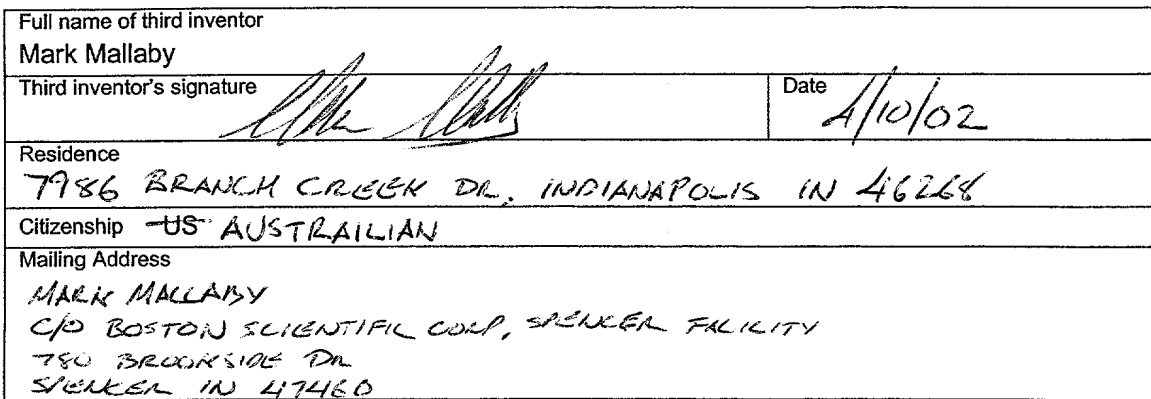 Full name of third inventor
Mark Mallaby
Third inventor's signature Date 4/10/02
Residence
7986 BRANCH CREEK DR. INDIANAPOLIS IN 46268
Citizenship US AUSTRAILIAN
Mailing Address
MARK MALLABY
C/O BOSTON SCIENTIFIC CORP, SPENCER FACILITY
780 BROOKSIDE DR
SPENCER IN 47460